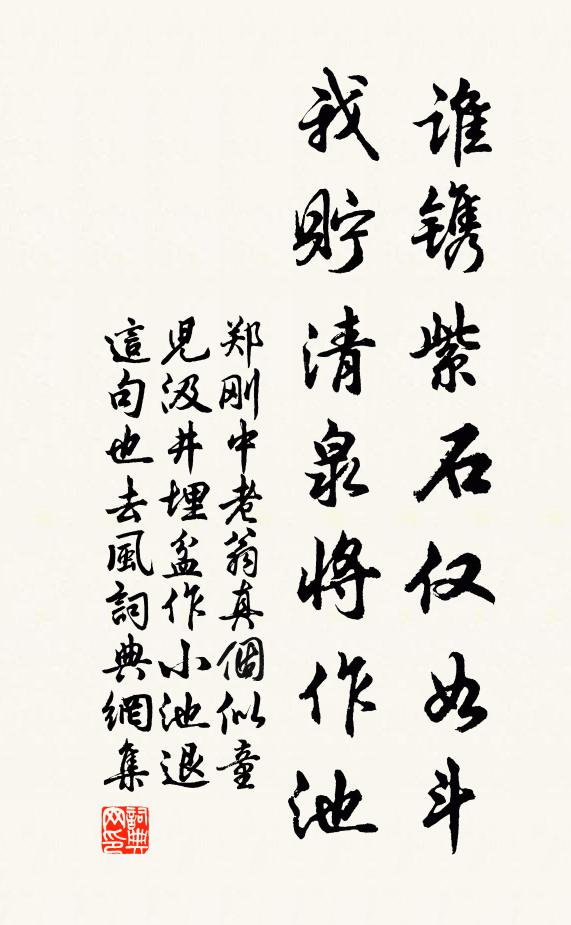 谁镌紫石仅如斗
我貯清泉将作池
郑刚中老翁真個似童
児汲井埋盆作小池退
這句也去風詞典網集
詞典
网印